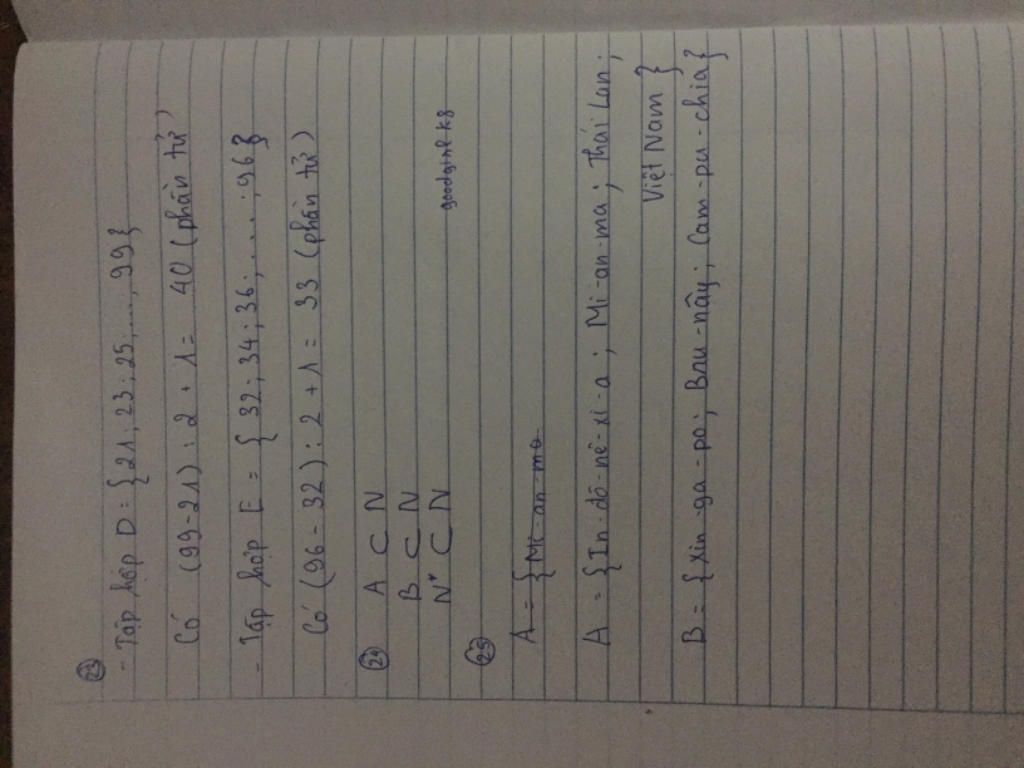 23
- Tập hợp D = {21; 23; 25;...; 99}
Có (99-21) : 2 + 1 = 40 (phần tử)
- Tập hợp E = {32; 34; 36; ....; 96}
Có (96 - 32) : 2 + 1 = 33 (phần tử)
24 A ⊂ N
B ⊂ N
N* ⊂ N
goodgirl2k8
25
A = {Mi-an-ma
A = {In-đô-nê-xi-a; Mi-an-ma; Thái Lan;
Việt Nam}
B = {Xin-ga-po; Bru-nây; Cam-pu-chia}